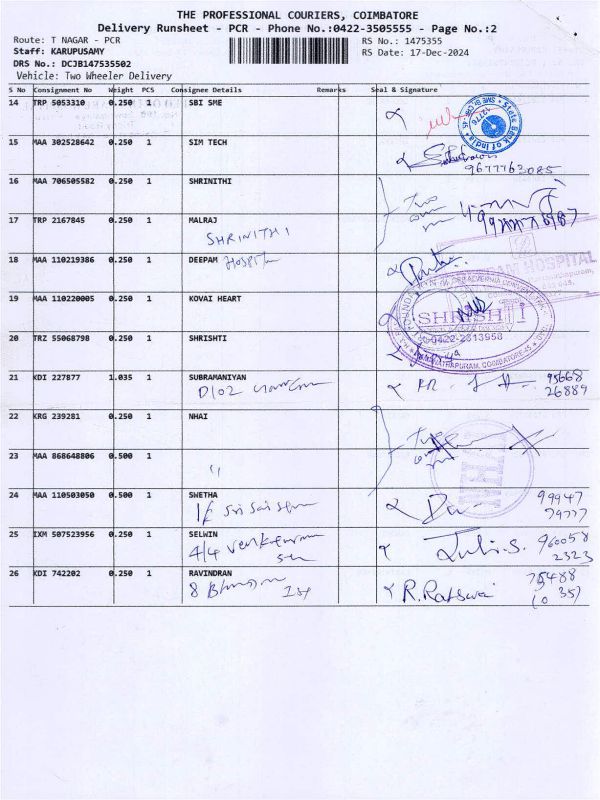 THE PROFESSIONAL COURIERS, COIMBATORE
Delivery Runsheet - PCR - Phone No.:0422-3505555 - Page No.:2
Route: T NAGAR - PCR
RS No.: 1475355
Staff: KARUPUSAMY
RS Date: 17-Dec-2024
DRS No.: DCJB147535502
Vehicle: Two Wheeler Delivery
S No Consignment No Weight PCS Consignee Details Remarks Seal & Signature
14 TRP 5053310 0.250 1 SBI SME
State Bank of India
15 MAA 302528642 0.250 1 SIM TECH
9677763085
16 MAA 706505582 0.250 1 SHRINITHI
Two
17 TRP 2167845 0.250 1 MALRAJ
SHRINITHI
18 MAA 110219386 0.250 1 DEEPAM
Hospital
HOSPITAL
19 MAA 110220005 0.250 1 KOVAI HEART
SHRISHTI
0422-2313958
COIMBATORE-45
20 TRZ 55068798 0.250 1 SHRISHTI
21 KDI 227877 1.035 1 SUBRAMANIYAN
D102
95668
26889
22 KRG 239281 0.250 1 NHAI
Two
23 MAA 868648806 0.500 1
"
NHAI
24 MAA 110503050 0.500 1 SWETHA
99947
79777
25 IXM 507523956 0.250 1 SELWIN
4/4
Julie.S. 960058
2323
26 KDI 742202 0.250 1 RAVINDRAN
8 1st
75488
(0 35)